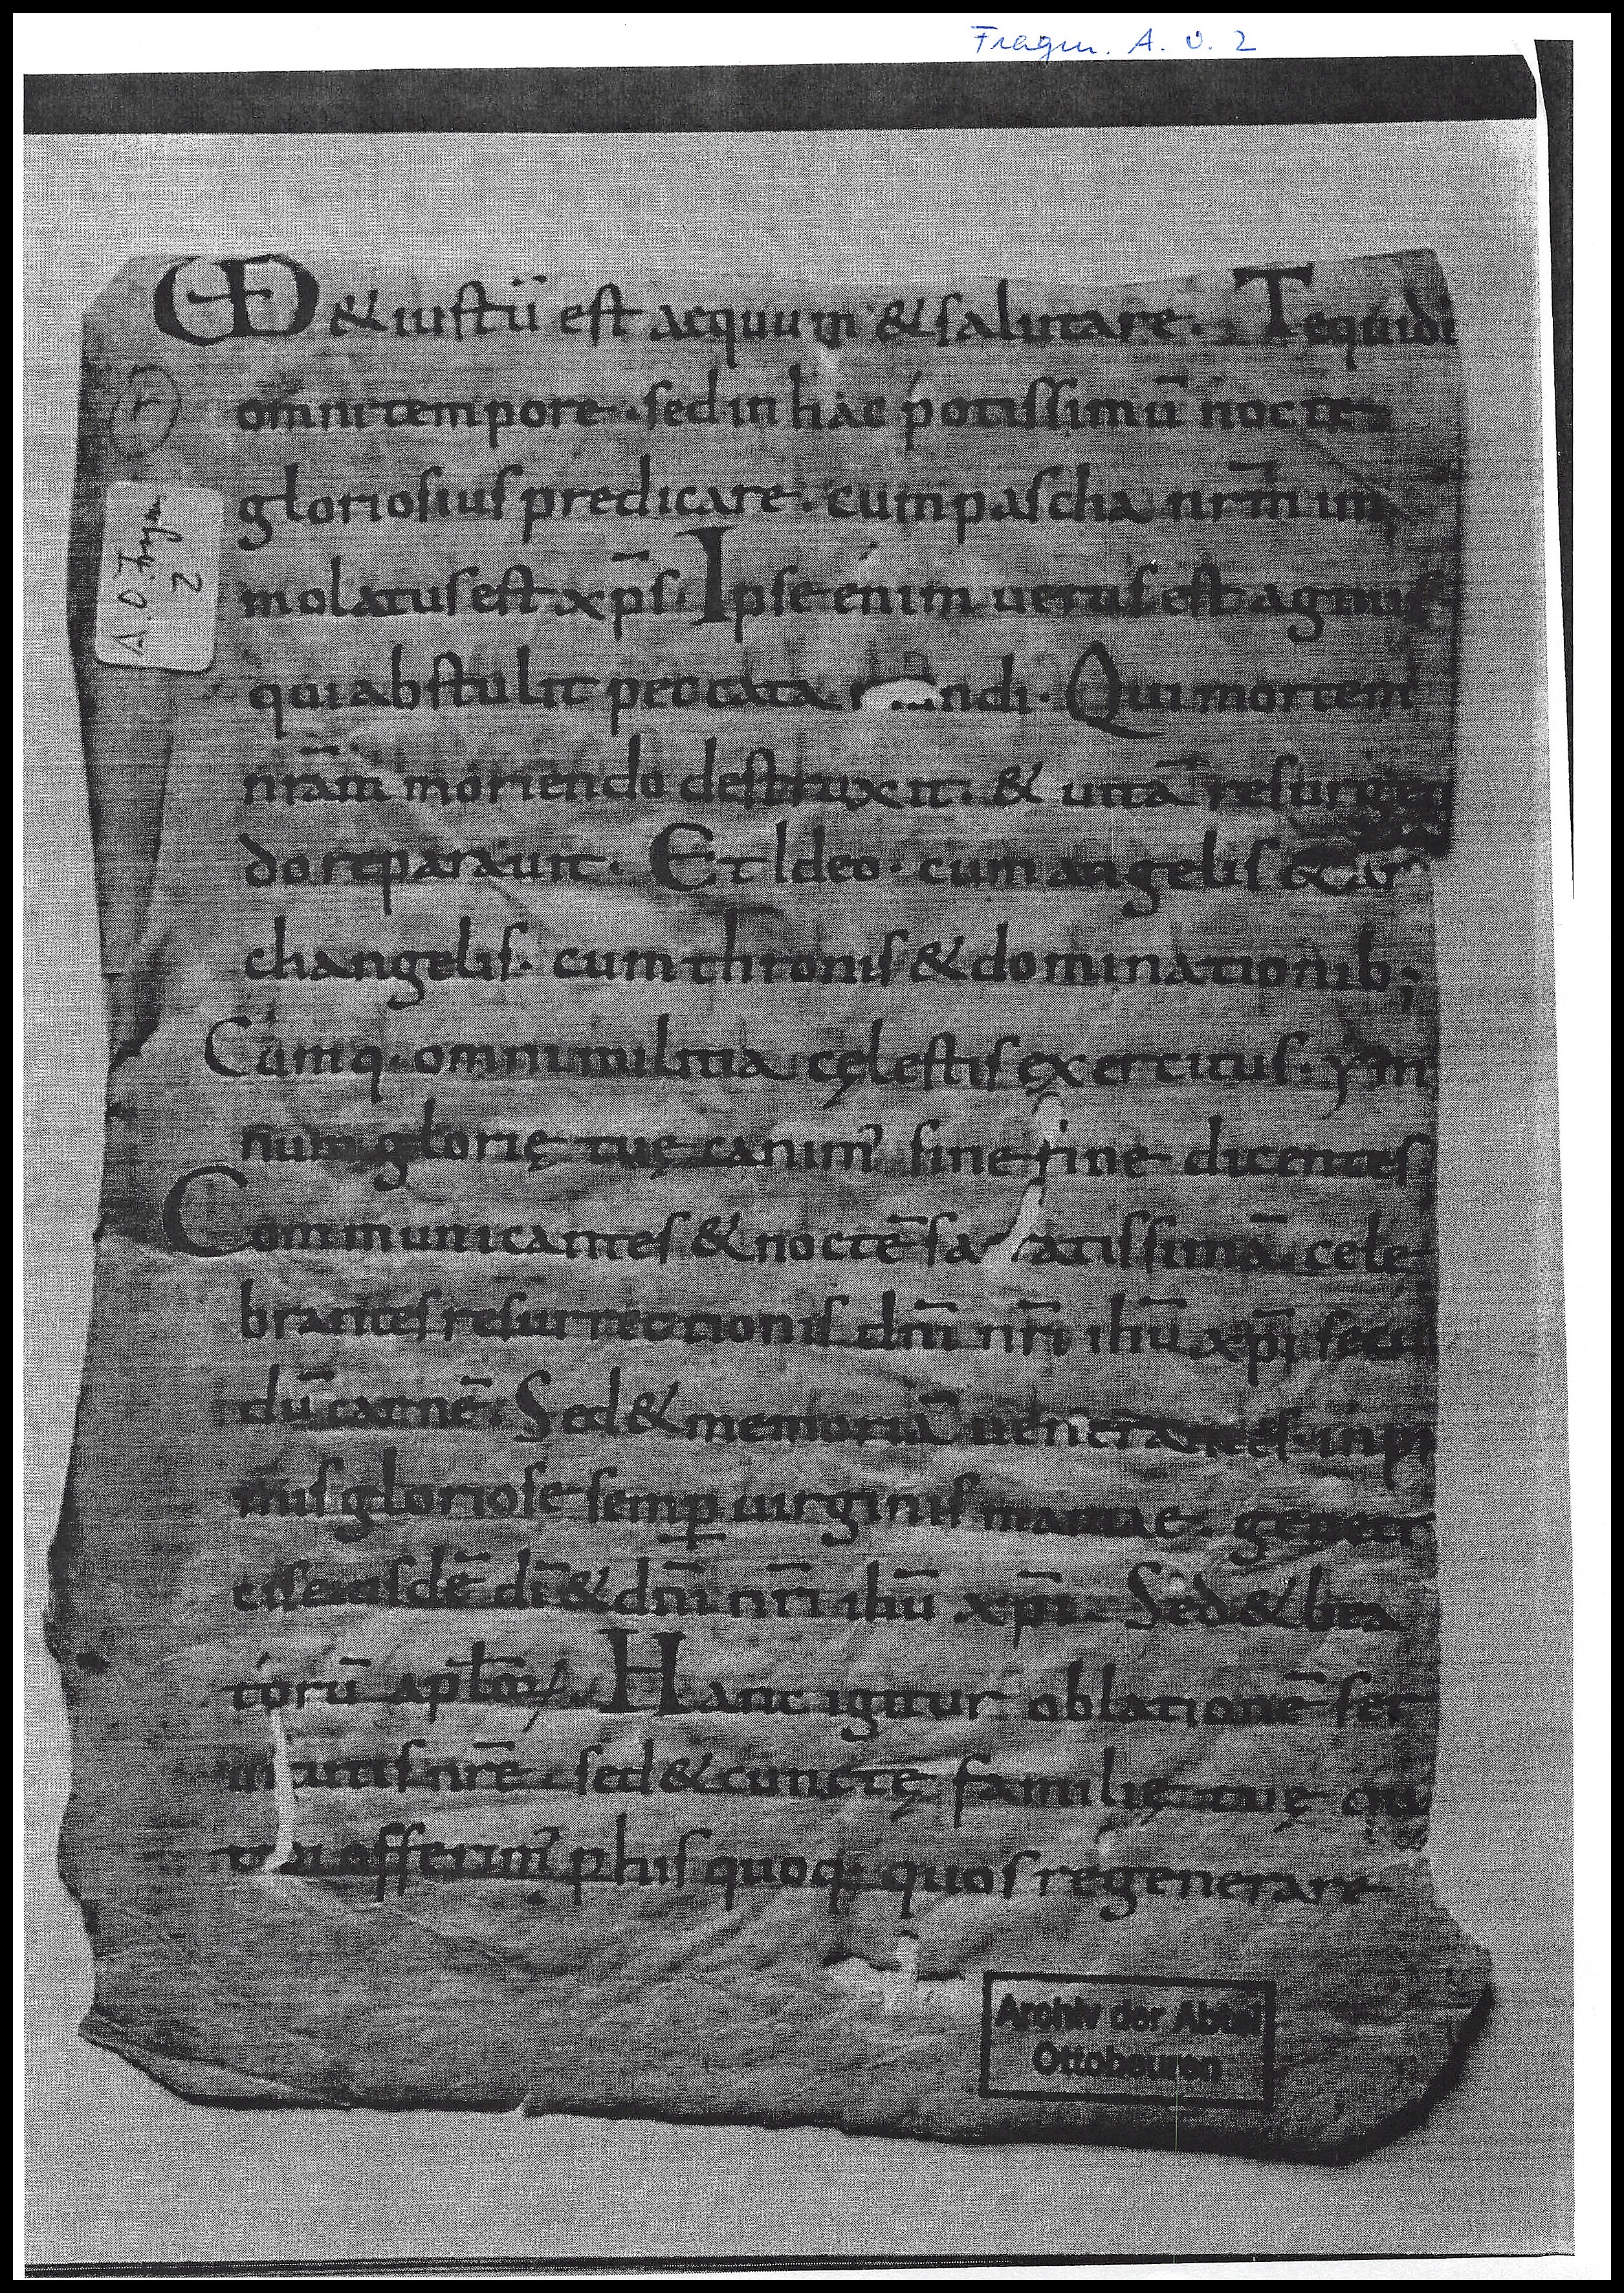 Fragm. A. O. 2
UD & iustū est aequum & salutare. Te quidē
omni tempore. sed in hac potissimū nocte
gloriosius predicare. cum pascha nr̄m im
molatus est xp̄s. Ipse enim uerus est agnus
qui abstulit peccata ndi. Qui mortem
nrām moriendo destruxit. & uitā resurgen
do reparauit. Et Ideo. cum angelis & ar
changelis. cum thronis & dominationib;
Cumq. omni militia cęlestis exercitus. ym
num glorię tuę canim' sine fine dicentes.
Communicantes & noctē sa ratissimā cele
brantes resurrectionis dn̄i nr̄i ihū xp̄i secū
dū carnē. Sed & memoriā uenerantes. inpri
mis gloriose semp uirginis marie. genetri
cis eiusdē dī & dn̄i nr̄i ihū xp̄i. Sed & bea
torū apl̄oꝝ. Hanc igitur oblationē ser
uitutis nrē. sed & cunctę familię tuę quā
tibi offerim' p his quoq; quos regenerare
A. O. Fragm.
2
Archiv der Abtei
Ottobeuren